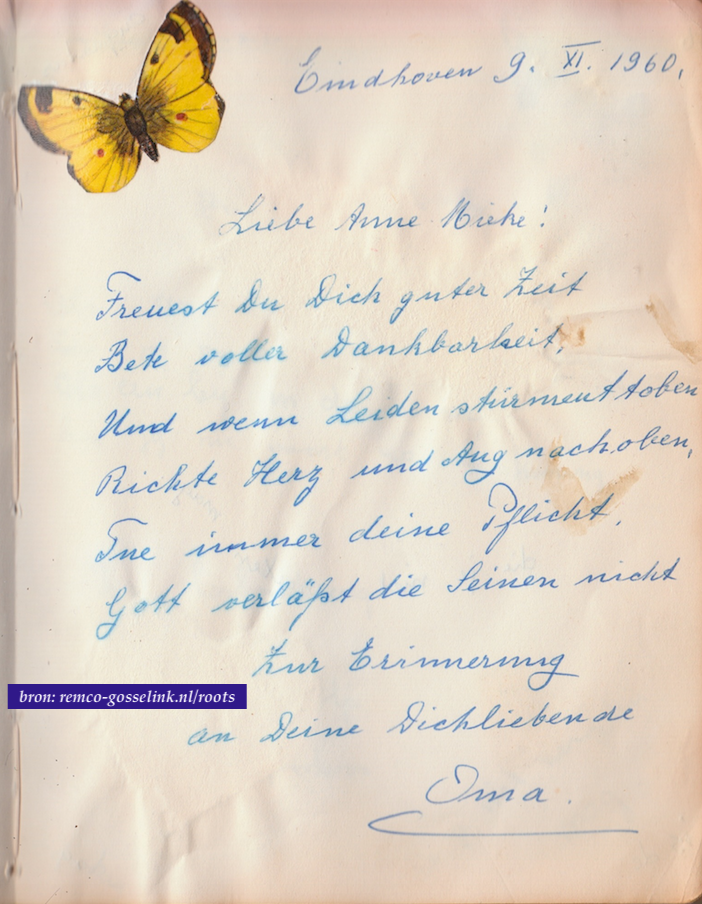 Eindhoven 9. XI. 1960.
Liebe Anne Mieke!
Freuest Du Dich guter Zeit
Bete voller Dankbarkeit,
Und wenn Leiden stürment toben
Richte Herz und Aug nach oben,
Tue immer deine Pflicht,
Gott verläßt die Seinen nicht
Zur Erinnerung
bron: remco-gosselink.nl/roots
an Deine Dichliebende
Oma.